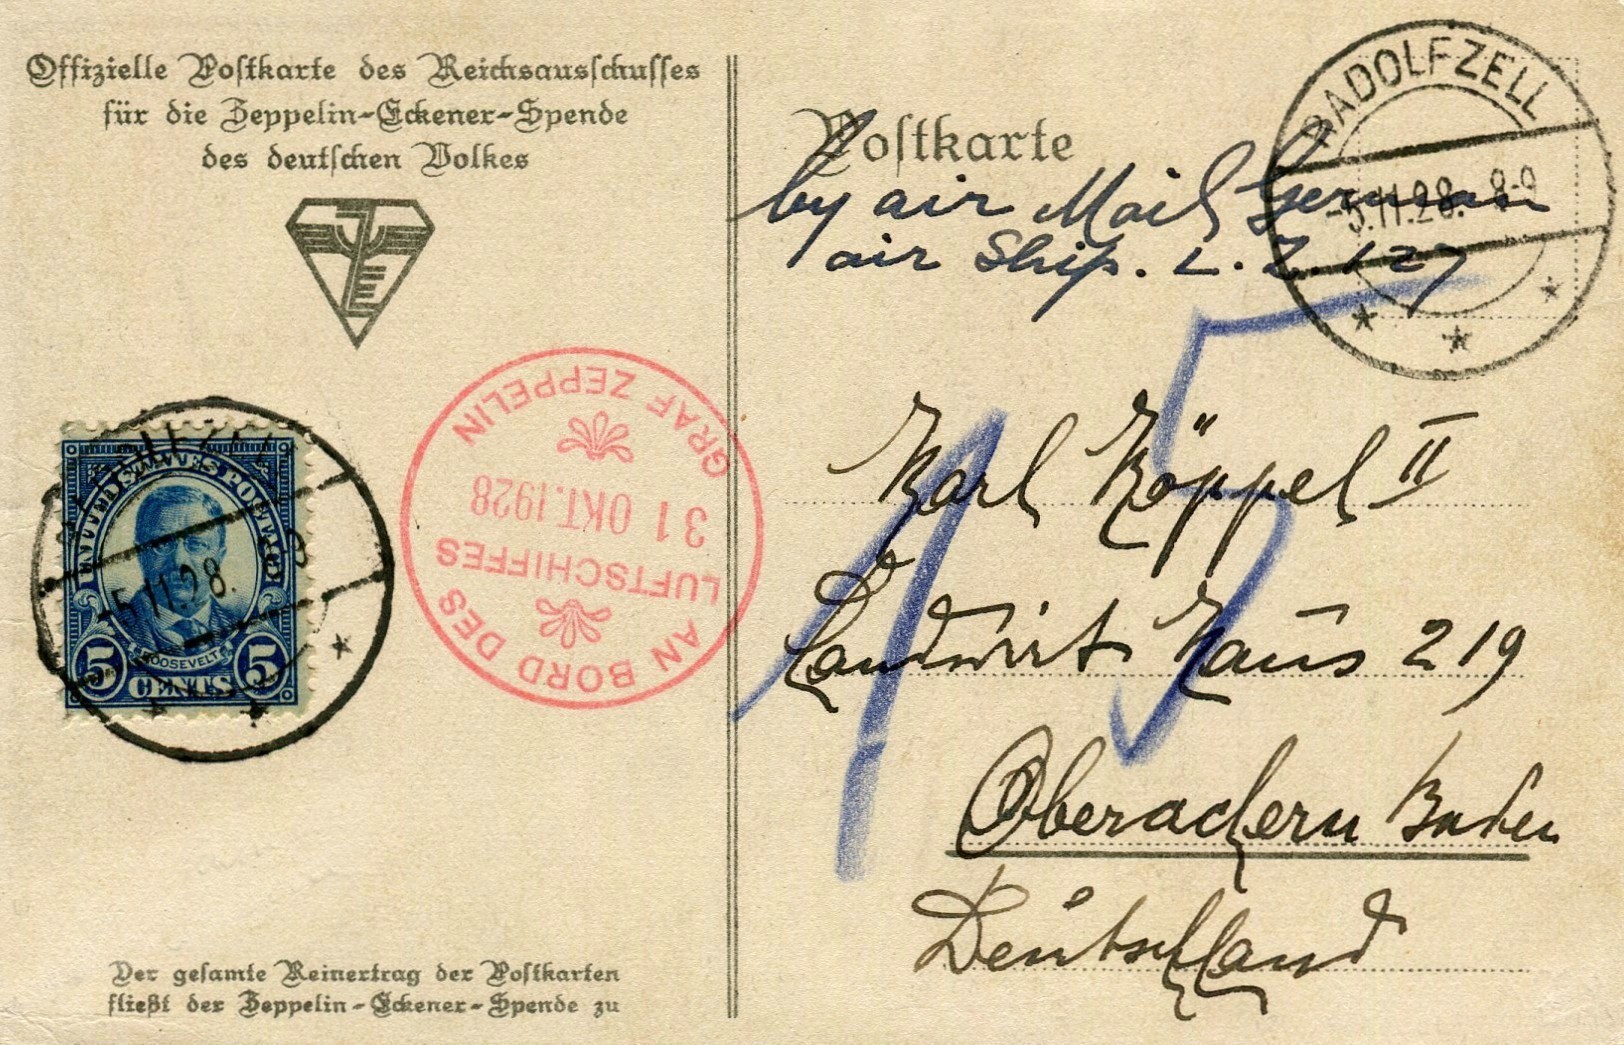 Offizielle Postkarte des Reichsausschusses
für die Zeppelin-Eckener-Spende
des deutschen Volkes
ZE
UNITED STATES POSTAGE
ROOSEVELT
5 CENTS 5
-5.11.28.
AN BORD DES
LUFTSCHIFFES
31 OKT. 1928
GRAF ZEPPELIN
Der gesamte Reinertrag der Postkarten
fließt der Zeppelin-Eckener-Spende zu
Postkarte
RADOLFZELL
-5.11.28. 8-9
by air Mail German
air Ship. L. Z. 127
15
Karl Köppel II
Landwirt Haus 219
Oberachern Baden
Deutschland